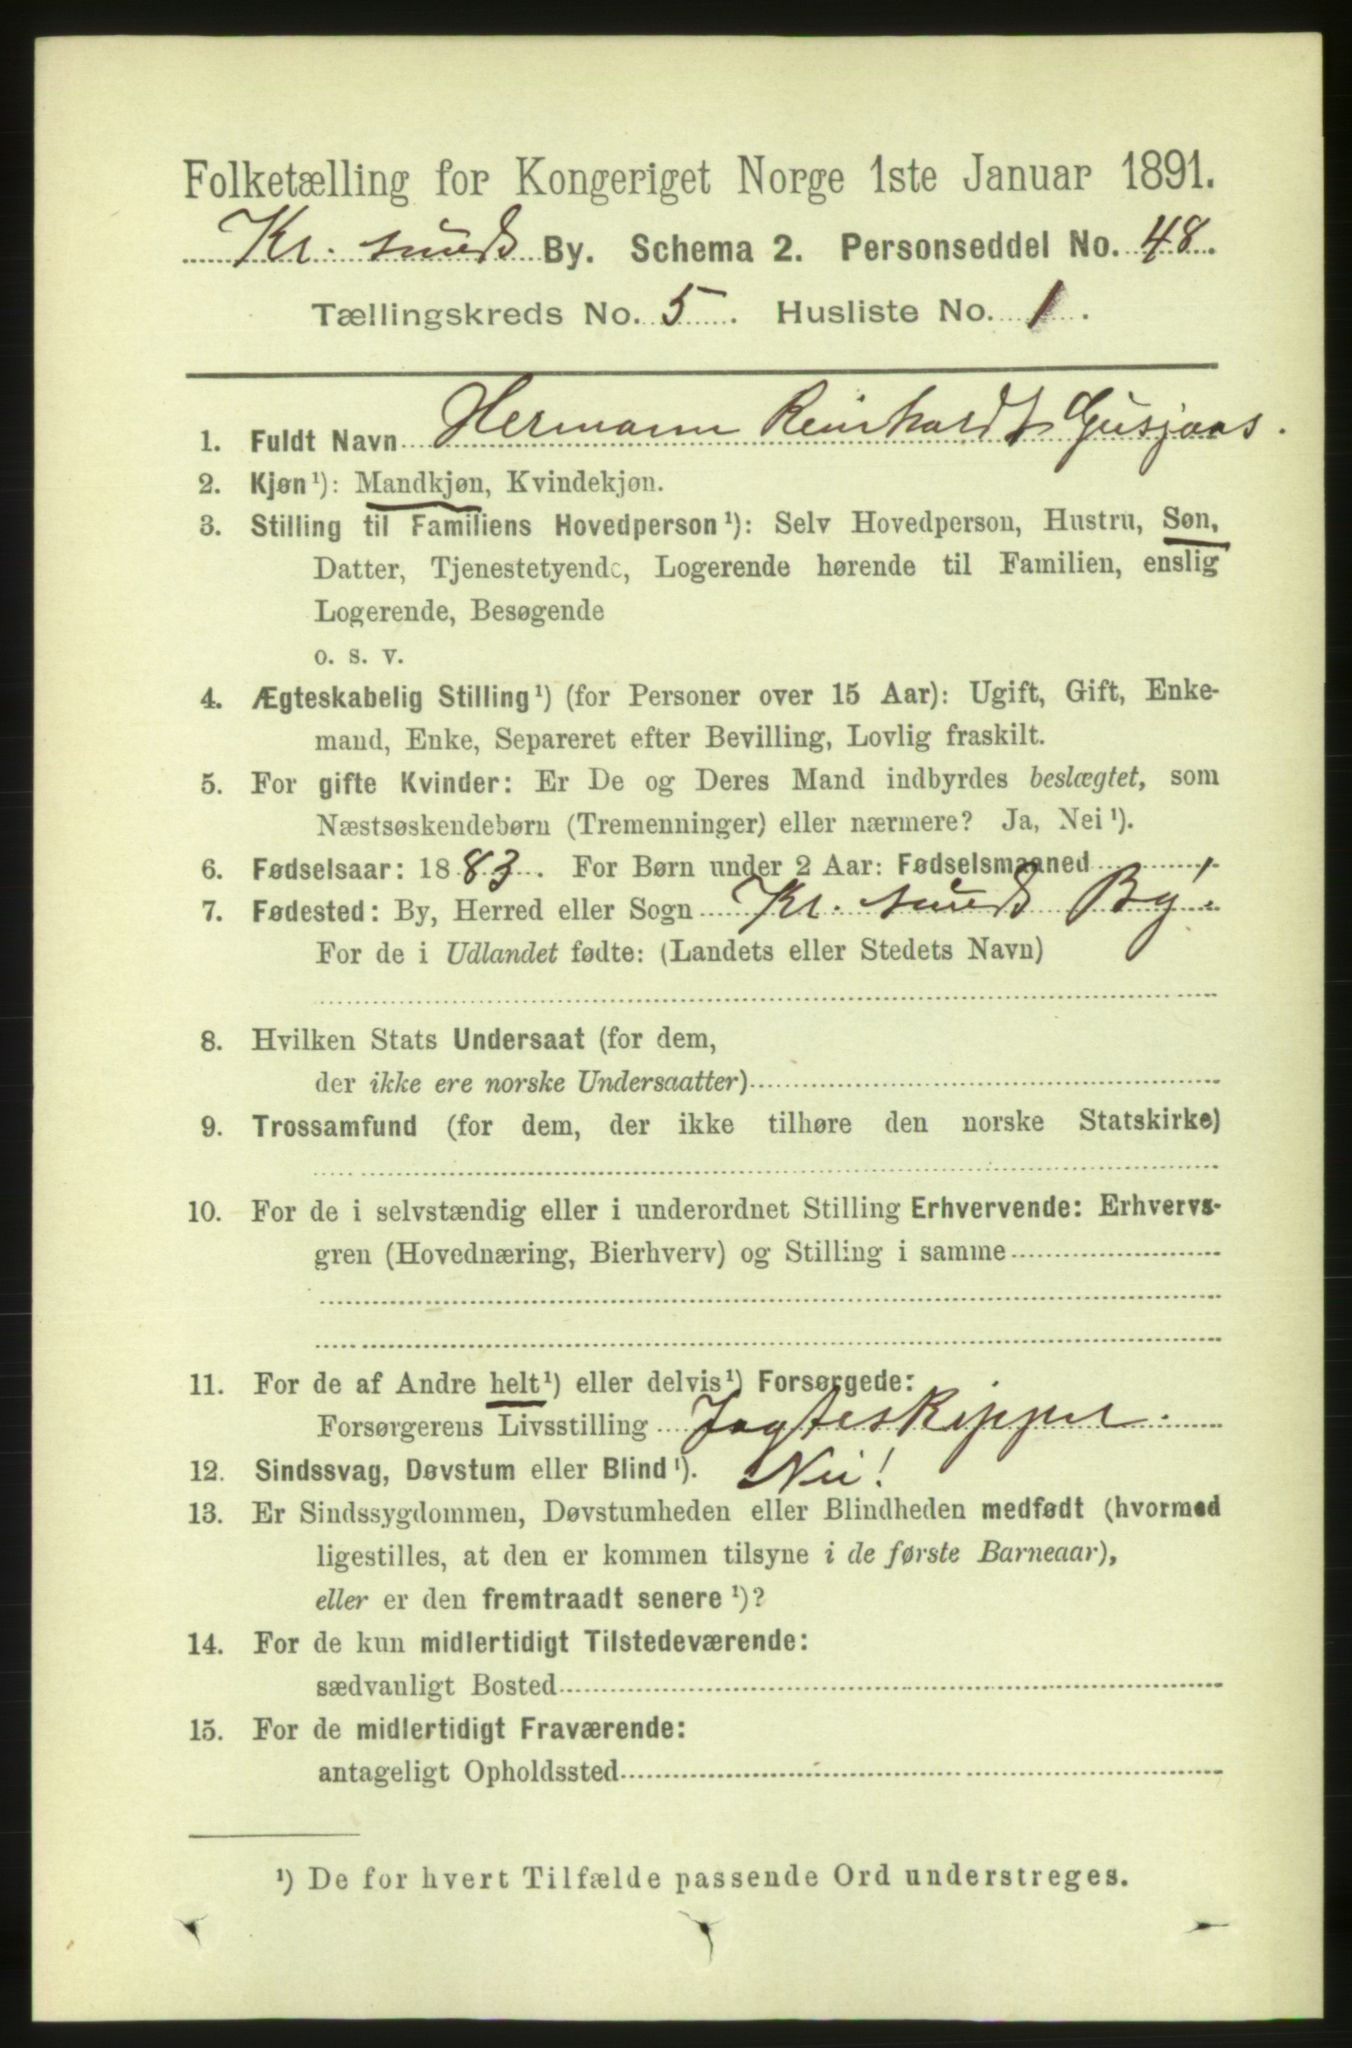 Folketælling for Kongeriget Norge 1ste Januar 1891.
Kr. sunds By. Schema 2. Personseddel No. 48.
Tællingskreds No. 5. Husliste No. 1.
1. Fuldt Navn Hermann Reinhardt Gusjaas.
2. Kjøn¹): Mandkjøn, Kvindekjøn.
3. Stilling til Familiens Hovedperson¹): Selv Hovedperson, Hustru, Søn,
Datter, Tjenestetyende, Logerende hørende til Familien, enslig
Logerende, Besøgende
o. s. v.
4. Ægteskabelig Stilling¹) (for Personer over 15 Aar): Ugift, Gift, Enke-
mand, Enke, Separeret efter Bevilling, Lovlig fraskilt.
5. For gifte Kvinder: Er De og Deres Mand indbyrdes beslægtet, som
Næstsøskendebørn (Tremenninger) eller nærmere? Ja, Nei¹).
6. Fødselsaar: 1883. For Børn under 2 Aar: Fødselsmaaned
7. Fødested: By, Herred eller Sogn Kr. sunds By!
For de i Udlandet fødte: (Landets eller Stedets Navn)
8. Hvilken Stats Undersaat (for dem,
der ikke ere norske Undersaatter)
9. Trossamfund (for dem, der ikke tilhøre den norske Statskirke)
10. For de i selvstændig eller i underordnet Stilling Erhvervende: Erhvervs-
gren (Hovednæring, Bierhverv) og Stilling i samme
11. For de af Andre helt¹) eller delvis¹) Forsørgede:
Forsørgerens Livsstilling Jagteskipper.
12. Sindssvag, Døvstum eller Blind¹). Nei!
13. Er Sindssygdommen, Døvstumheden eller Blindheden medfødt (hvormed
ligestilles, at den er kommen tilsyne i de første Barneaar),
eller er den fremtraadt senere¹)?
14. For de kun midlertidigt Tilstedeværende:
sædvanligt Bosted
15. For de midlertidigt Fraværende:
antageligt Opholdssted
¹) De for hvert Tilfælde passende Ord understreges.